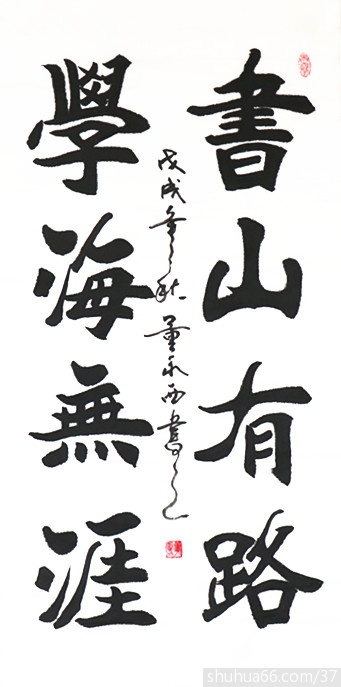 書山有路
學海無涯
戊戌年秋董永西書
shuhua66.com/37